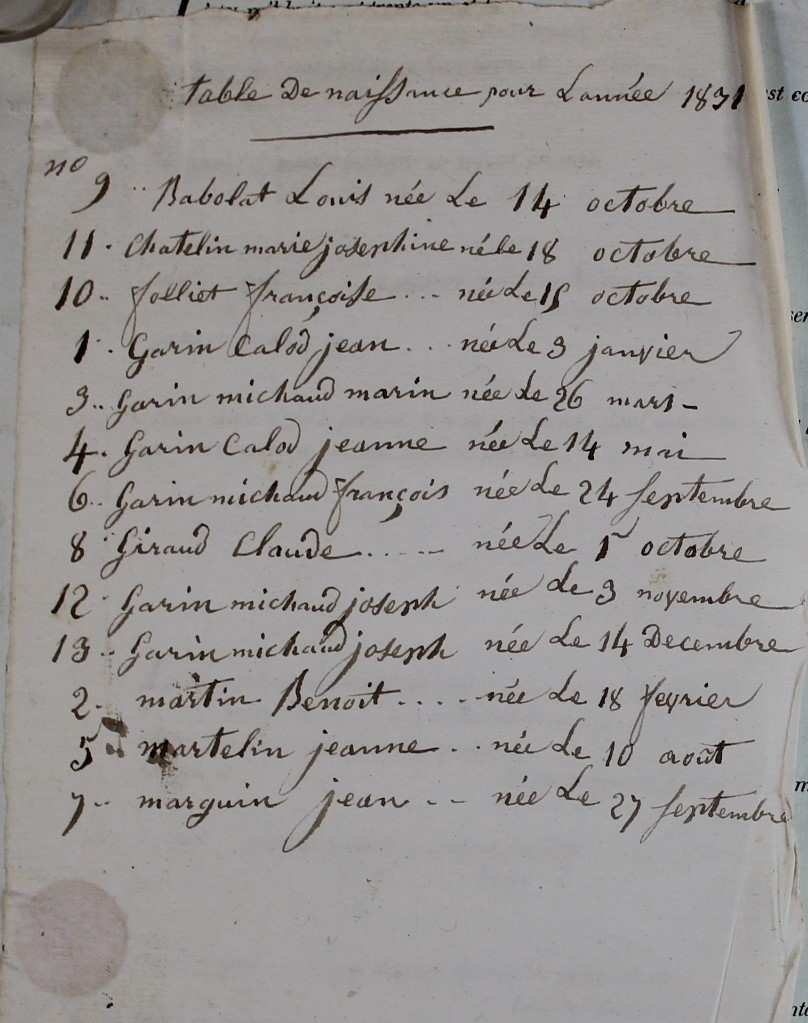 table De naissance pour Lannée 1831
no
9 Babolat Louis née Le 14 octobre
11. chatelin marie josephine né le 18 octobre
10.. folliet françoise ... née Le 15 octobre
1. Garin Calod jean ... née Le 3 janvier
3.. Garin michaud marin née Le 26 mars -
4. Garin Calod jeanne née Le 14 mai
6.. Garin michaud françois née Le 24 septembre
8 Giraud Claude ..... née Le 1r octobre
12. Garin michaud joseph née Le 3 novembre
13.. Garin michaud joseph née Le 14 Decembre
2. martin Benoit .... née Le 18 fevrier
5 martelin jeanne .. née Le 10 août
7.. marguin jean .. née Le 27 septembre